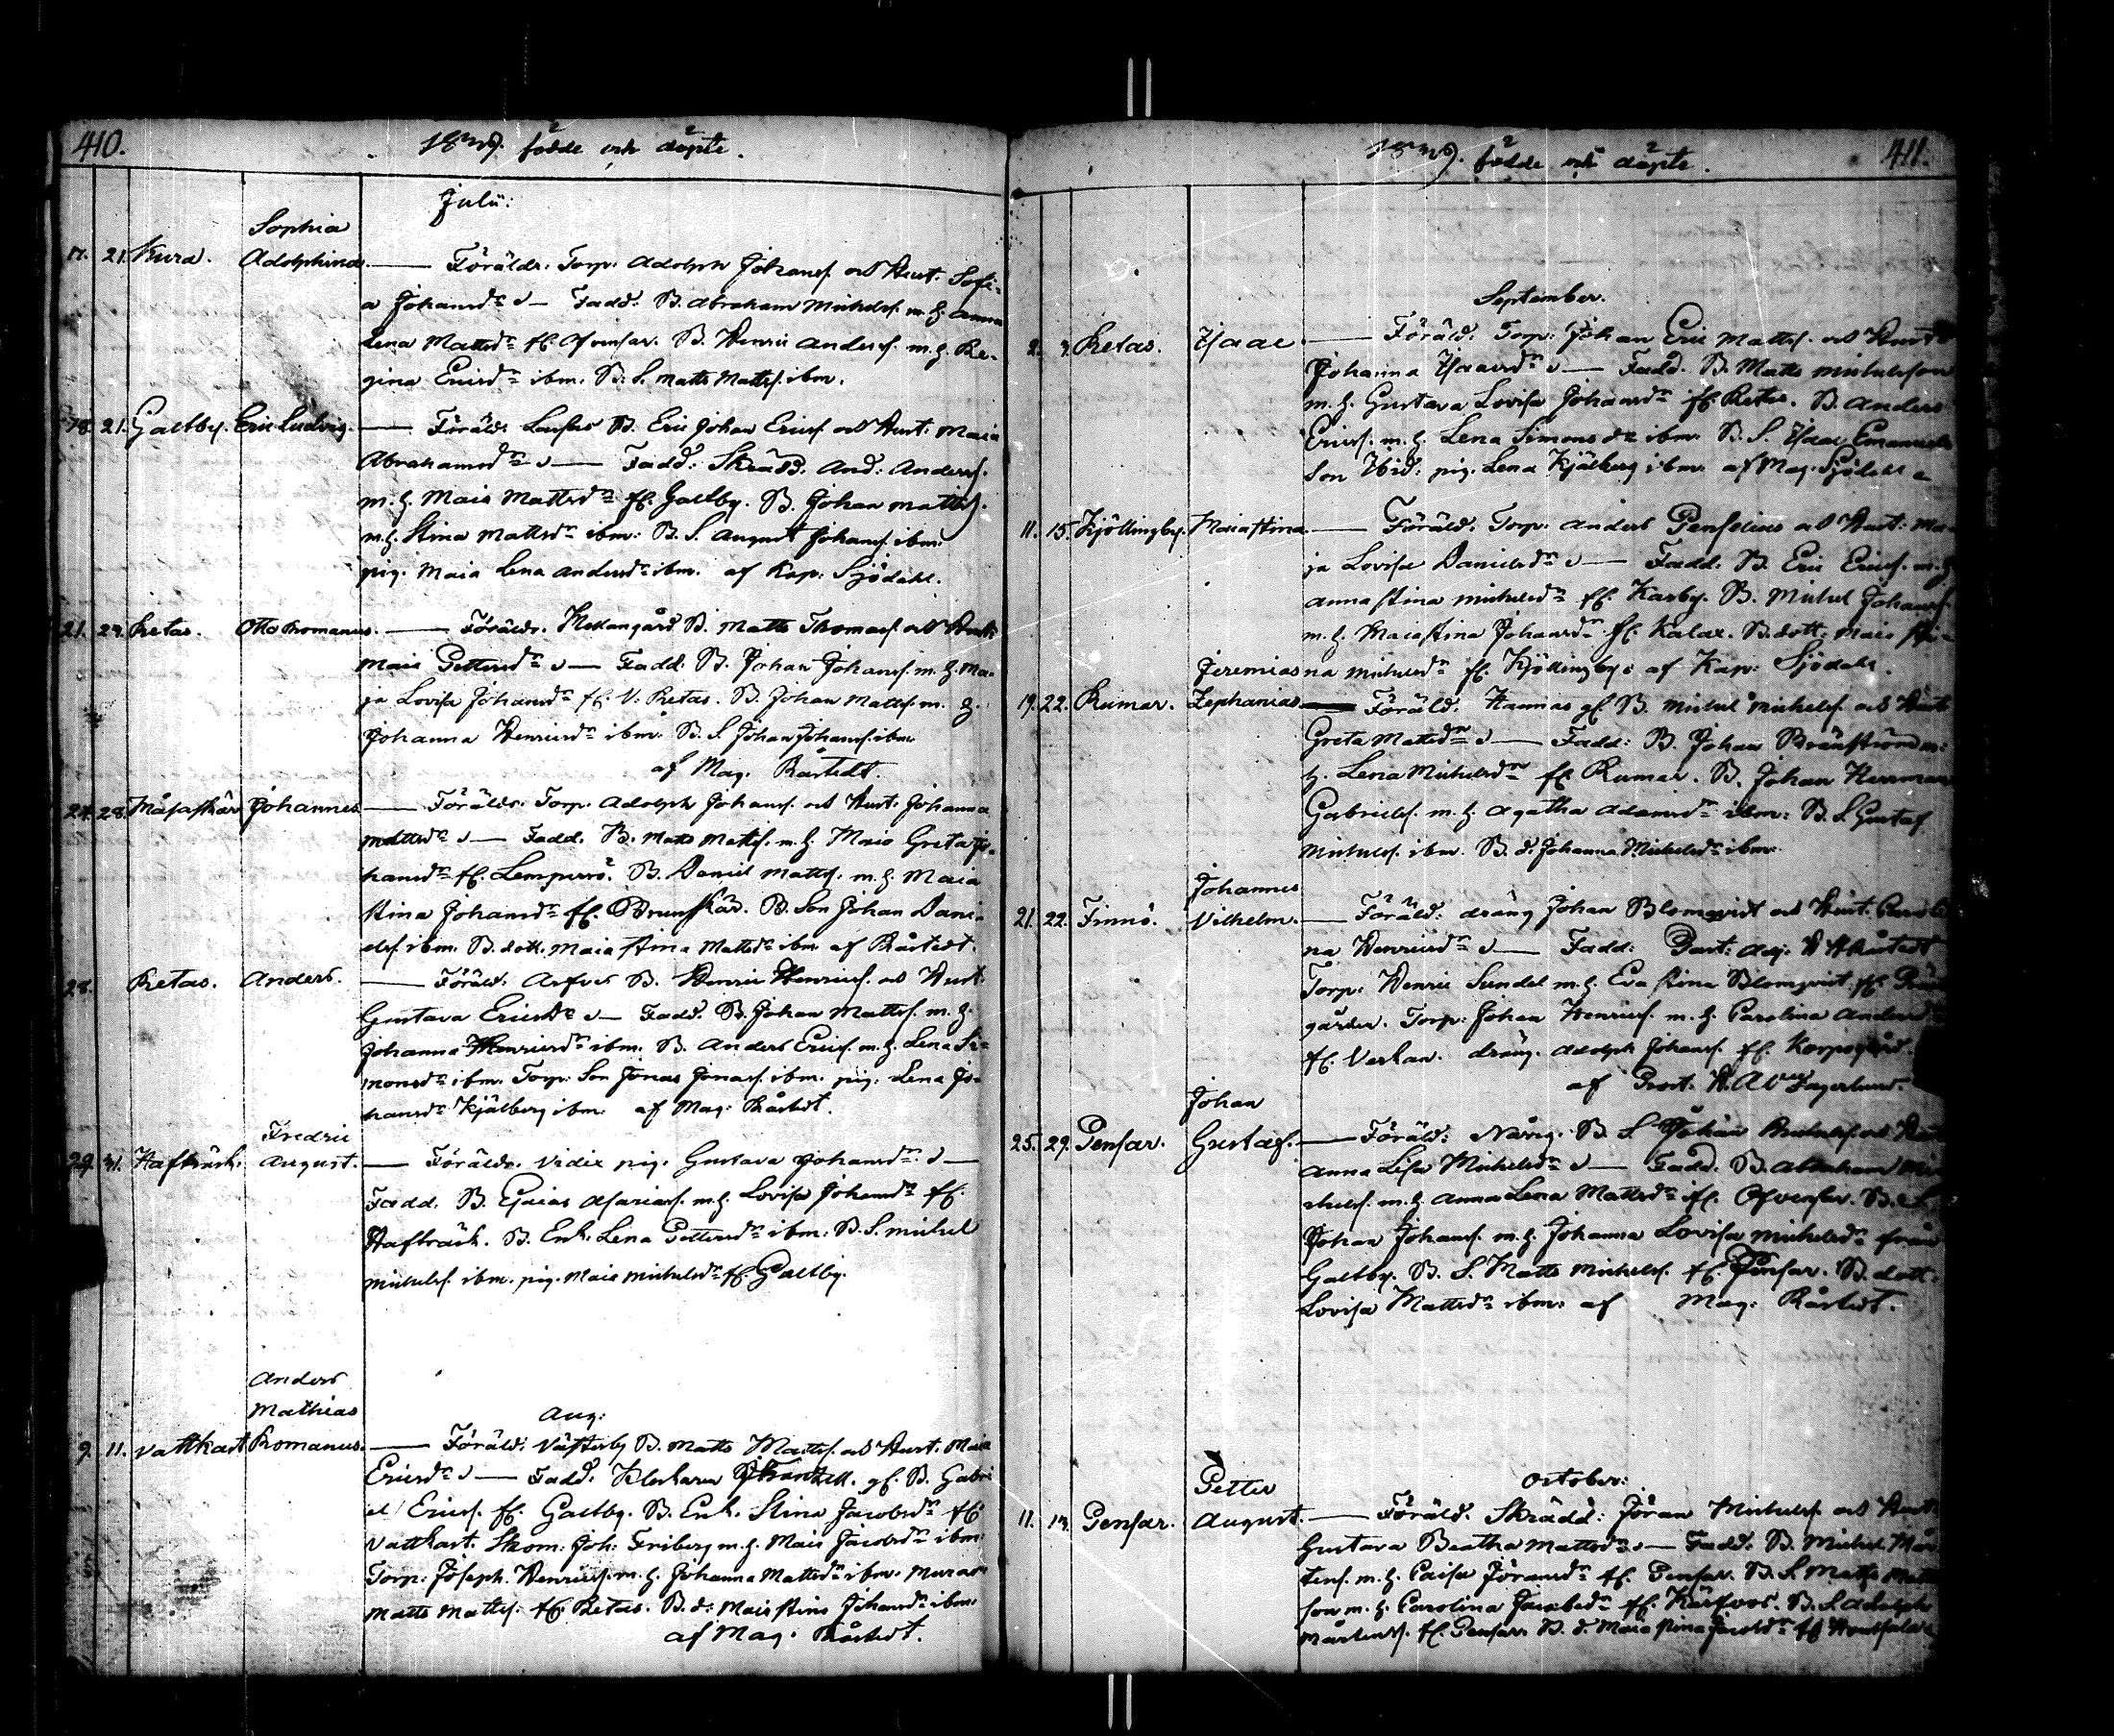 410.
1849. födde och döpte.
Julii:
Sophia
17. 21. Kura. Adolphina. — Föräldr: Torp: Adolph Johanss. och Hust. Sofi-
a Johansdr — Fadd. B. Abraham Michelss. m. h. Anna
Lena Mattsdr fr. Ofvensar. B. Henric Anderss. m. h. Re-
gina Ericsdr ibm. B. S. Matts Mattss. ibm.
18. 21. Galtby. Eric Ludvig. — Föräldr. B. Eric Johan Ericss. och Hust. Maia
Abrahamsdr — Fadd: Skrädd. And: Anderss.
m. h. Maia Mattsdr fr. Galtby. B. Johan Mattss.
m. h. Stina Mattsdr ibm: B. S. August Johanss. ibm:
pig. Maia Lena Andersdr ibm. af Kap: Sjödahl.
21. Retas. Otto Romanus. — Föräldr. Mellangård B. Matts Thomass. och Hust.
Maia Pettersdr — Fadd. B. Johan Johanss. m. h. Ma-
ja Lovisa Johansdr fr. V. Retas. B. Johan Mattss. m. h.
Johanna Henricsdr ibm: B. S. Johan Johanss. ibm.
af Mag. Råstedt.
24. 28. Måsaskär Johannes — Föräldr. Torp. Adolph Johanss. och Hust. Johanna
Mattsdr — Fadd. B. Matts Mattss. m. h. Maia Greta Jo-
hansdr fr. Lempersö. B. Daniel Mattss. m. h. Maia
Stina Johansdr fr. Brunskär. B. Son Johan Dani-
elss. ibm. B. dott. Maia Stina Mattsdr ibm af Råstedt.
28. Retas. Anders. — Föräld. Arfvas B. Henric Henricss. och Hust.
Gustava Ericsdr — Fadd. B. Johan Mattss. m. h.
Johanna Henricsdr ibm. B. Anders Ericss. m. h. Lena Si-
monsdr ibm. Torp: Son Jonas Jonass. ibm. pig. Lena Jo-
hansdr Kjälberg ibm: af Mag: Råstedt.
Fredric
29. 31. Hafträsk. August. — Föräldr. pig. Gustava Johansdr —
Fadd. B. Esaias Asariass. m. h. Lovisa Johansdr fr.
Hafträsk. B. Enk. Lena Pettersdr ibm: B. S. Michel
Michelss. ibm. pig. Maia Michelsdr fr. Galtby.
Anders
Mathias
Aug:
9. 11. Vattkast Romanus. — Föräld. Västerby B. Matts Mattss. och Hust. Maia
Ericsdr — Fadd. Klockaren gl. B. Gabri-
el Ericss. fr. Galtby. B. Enk. Stina Jacobsdr fr.
Vattkast. Skom: Joh: Friberg m. h. Maia Jacobsdr ibm:
Torp: Joseph Henricss. m. h. Johanna Mattsdr ibm. Murar
Matts Mattss. fr. Retas. B. d: Maia Stina Johansdr ibm.
af Mag: Råstedt.
1849. födde och döpte.
411.
September.
2. Retas. Isaac — Föräld. Torp: Johan Eric Mattss. och Hust
Johanna Isacsdr — Fadd. B. Matts Michelsson
m. h. Gustava Lovisa Johansdr fr. Retas. B. Anders
Ericss. m. h. Lena Simonsdr ibm: B. S. Isaac Emanuels
Son Ibid: pig. Lena Kjälberg ibm: af Mag: Sjödahl
11. 15. Kjöllingby. Maia Stina. — Föräld. Torp: Anders Penselius och Hust: Ma-
ja Lovisa Danielsdr — Fadd. B. Eric Ericss. m. h
Anna Stina Michelsdr fr. Karby. B. Michel Johanss.
m. h. Maia Stina Johansdr fr. Kalax. B. dott: Maia Sti-
na Michelsdr fr. Kjöllingby: af Kap: Sjödahl.
Jeremias
19. 22. Rumar. Zephanias — Föräld. Hannas gl. B. Michel Michelss. och Hust
Greta Mattsdr — Fadd: B. Johan Brännström m:
h. Lena Michelsdr fr. Rumar. B. Johan Herrman
Gabrielss. m. h. Agatha Adamsdr ibm: B. S. Gustaf
Michelss. ibm. B. d. Johanna Michelsdr ibm:
Johannes
21. 22. Finnö. Vilhelm. — Föräld: dräng Johan Blomqvist och Hust. Caroli
na Henricsdr — Fadd: Past: Adj: Råstedt
Torp: Henric Sundel m. h. Eva Stina Blomqvist fr.
gården. Torp: Johan Henricss. m. h. Carolina Andersdr
fr. Verkan. dräng. Adolph Johanss. fr. Korpogård.
af Prost. Fagerlund.
Johan
25. 29. Pensar. Gustaf. — Föräld: B. S. Johan Michelss. och
Anna Lisa Michelsdr — Fadd. B. Abraham Mi-
chelss. m. h. Anna Lena Mattsdr fr. Ofvensar. B. S.
Johan Johanss. m. h. Johanna Lovisa Michelsdr från
Galtby. B. S. Matts Michelss. fr. Pensar. B. dott.
Lovisa Mattsdr ibm: af Mag: Råstedt.
October:
Petter
11. Pensar. August. — Föräld. Skrädd: Jöran Michelss. och Hust:
Gustava Beatha Mattsdr — Fadd. B. Michel Mår
tenss. m. h. Caisa Jöransdr fr. Pensar. B. S. Matts Matts
son m. h. Carolina Jacobsdr fr. B. S. Adolph
Mårtenss. fr. Pensar. B. d. Maia Stina Jacobsdr fr.